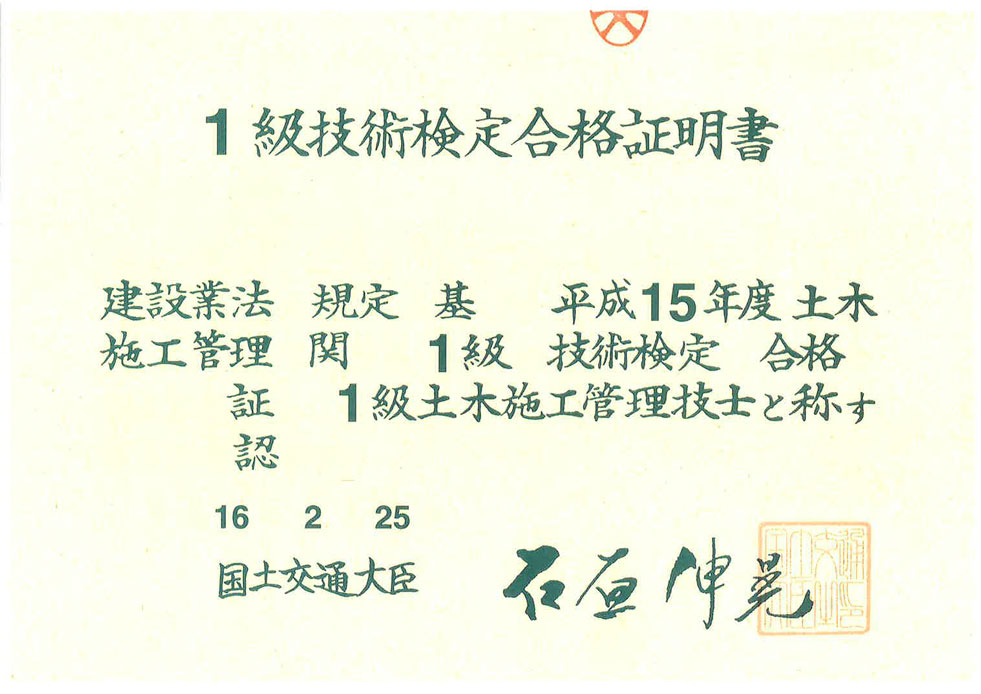 1級技術検定合格証明書
建設業法 規定 基 平成15年度 土木
施工管理 関 1級 技術検定 合格
証 1級土木施工管理技士と称す
認
16 2 25
国土交通大臣
石原 伸晃